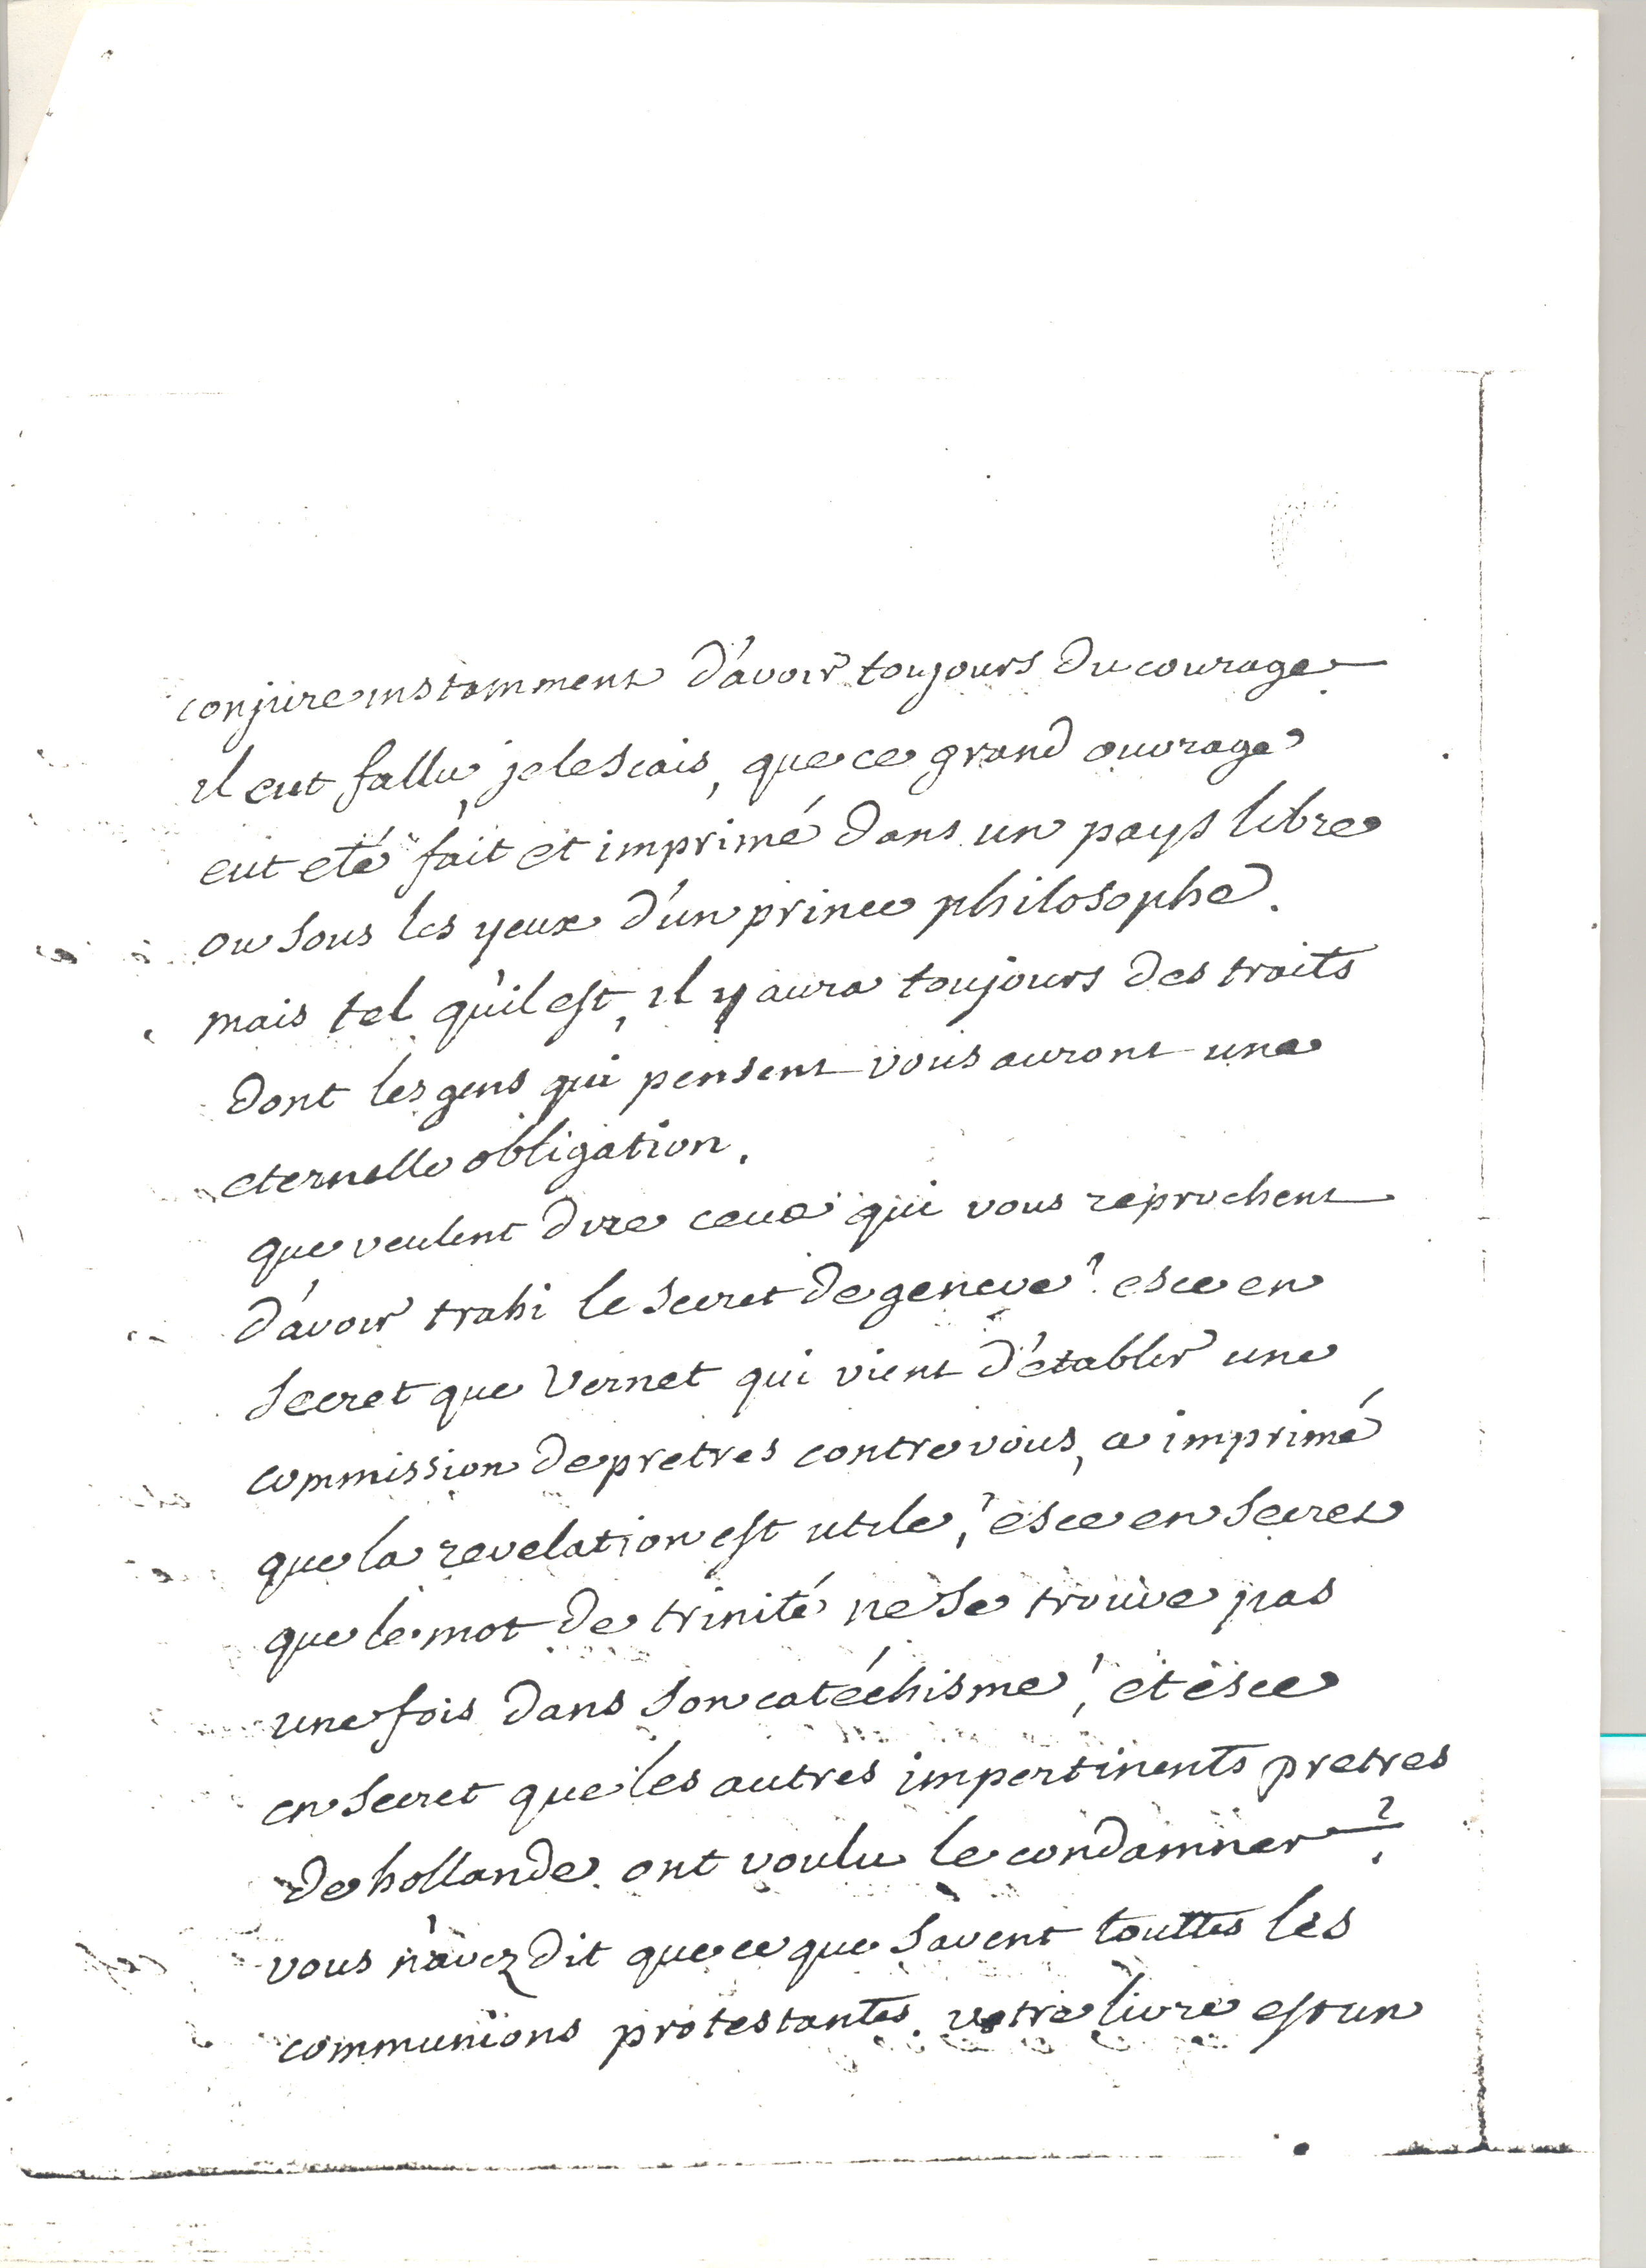 conjure instamment d'avoir toujours du courage
il eut fallu, je le scais, que ce grand ouvrage
eut eté fait et imprimé dans un pays libre
ou sous les yeux d'un prince philosophe.
mais tel qu'il est, il y aura toujours des traits
dont les gens qui pensent vous auront une
eternelle obligation.
que veulent dire ceux qui vous reprochent
d'avoir trahi le secret de geneve? esce en
secret que Vernet qui vient d'etablir une
commission de pretres contre vous, a imprimé
que la revelation est utile? esce en secret
que le mot de trinité ne se trouve pas
une fois dans son catéchisme? et esce
en secret que les autres impertinents pretres
de hollande ont voulu le condamner?
vous n'avez dit que ce que savent touttes les
communions protestantes. votre livre est un